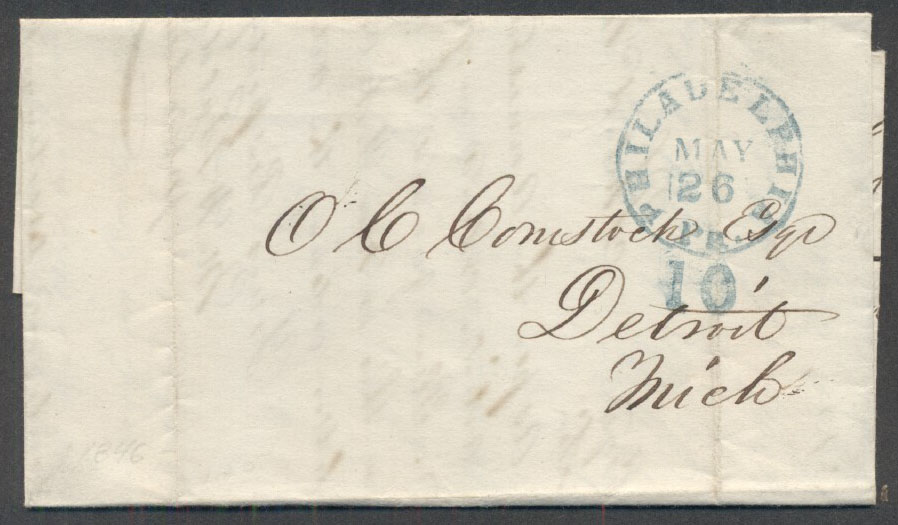 PHILADELPHIA
MAY
26
Pa.
O C Comstock Esqr
10
Detroit
Mich
1846